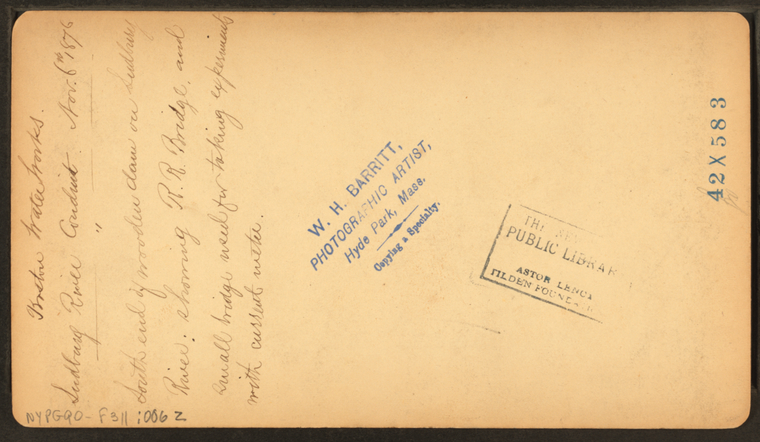 Boston Water Works.
Sudbury River Conduit. Nov. 6th 1876
"
South end of wooden dam on Sudbury
River: showing R. R. Bridge and
small bridge used for taking experiments
with current meter.
W. H. BARRITT,
PHOTOGRAPHIC ARTIST,
Hyde Park, Mass.
Copying a Specialty.
THE NEW
PUBLIC LIBRAR
ASTOR LENOX
TILDEN FOUNDA
42X583
NYPG90-F311 :006Z